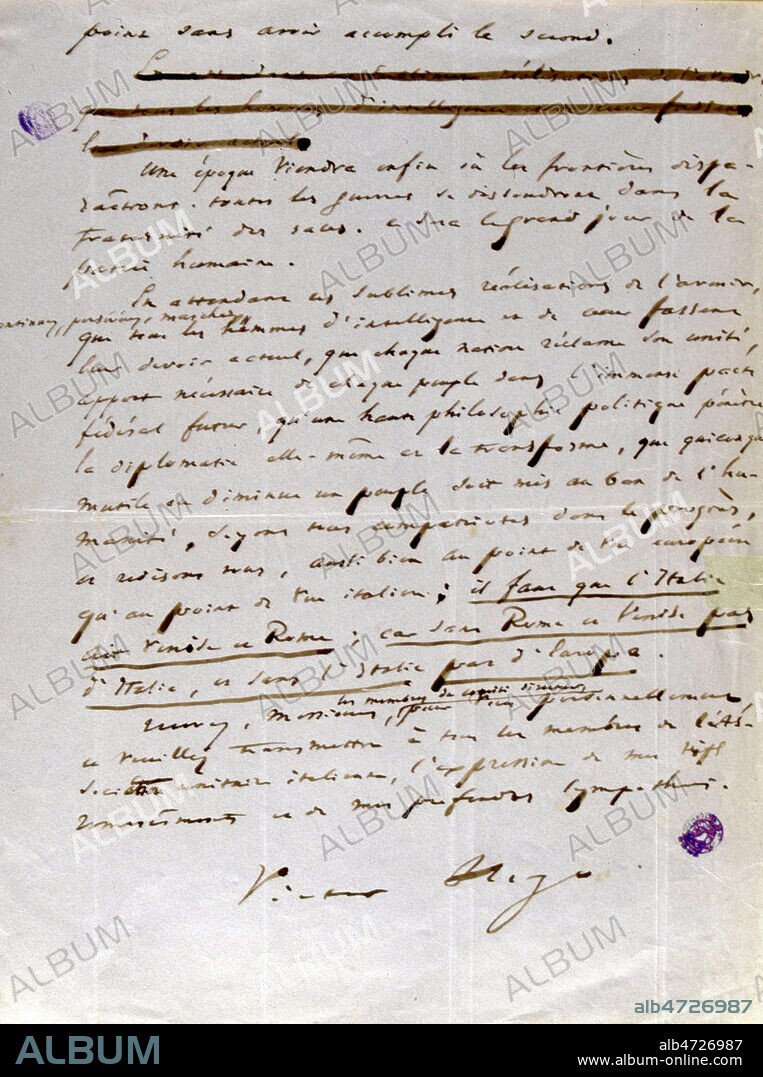 point sans avoir accompli le second.
En attendant
que tous les hommes d'intelligence
le devoir actuel
Une époque viendra enfin où les frontières dispa-
raîtront. toutes les guerres se dissoudront dans la
fraternité des races. ce sera le grand jour de la
patrie humaine.
En attendant ces sublimes réalisations de l'avenir,
continuez, persistez, marchez
que tous les hommes d'intelligence et de cœur fassent
leur devoir actuel, que chaque nation réclame son unité,
apport nécessaire de chaque peuple dans l'immense pacte
fédéral futur, qu'une haute philosophie politique pénètre
la diplomatie elle-même et la transforme, que quiconque
mutile ou diminue un peuple soit mis au ban de l'hu-
manité, soyons tous compatriotes dans le progrès,
et redisons tous, aussi bien au point de vue européen
qu'au point de vue italien ; il faut que l'Italie
ait Venise et Rome ; car sans Rome et Venise pas
d'Italie, et sans l'Italie pas d'Europe.
les membres du comité
Messieurs, pour personnellement
et veuillez transmettre à tous les membres de l'As-
sociation unitaire italienne, l'expression de mes vifs
remerciments et de mes profondes sympathies.
Victor Hugo
alb4726987
ALBUM
alb4726987
www.album-online.com